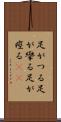 足がつる足
が攣る足が
痙る